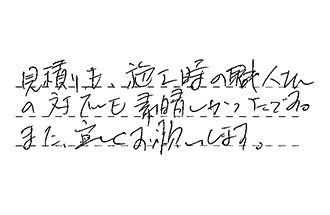 見積りも、施工時の職人さん
の対応も素晴しかったです。
また、宜しくお願いします。